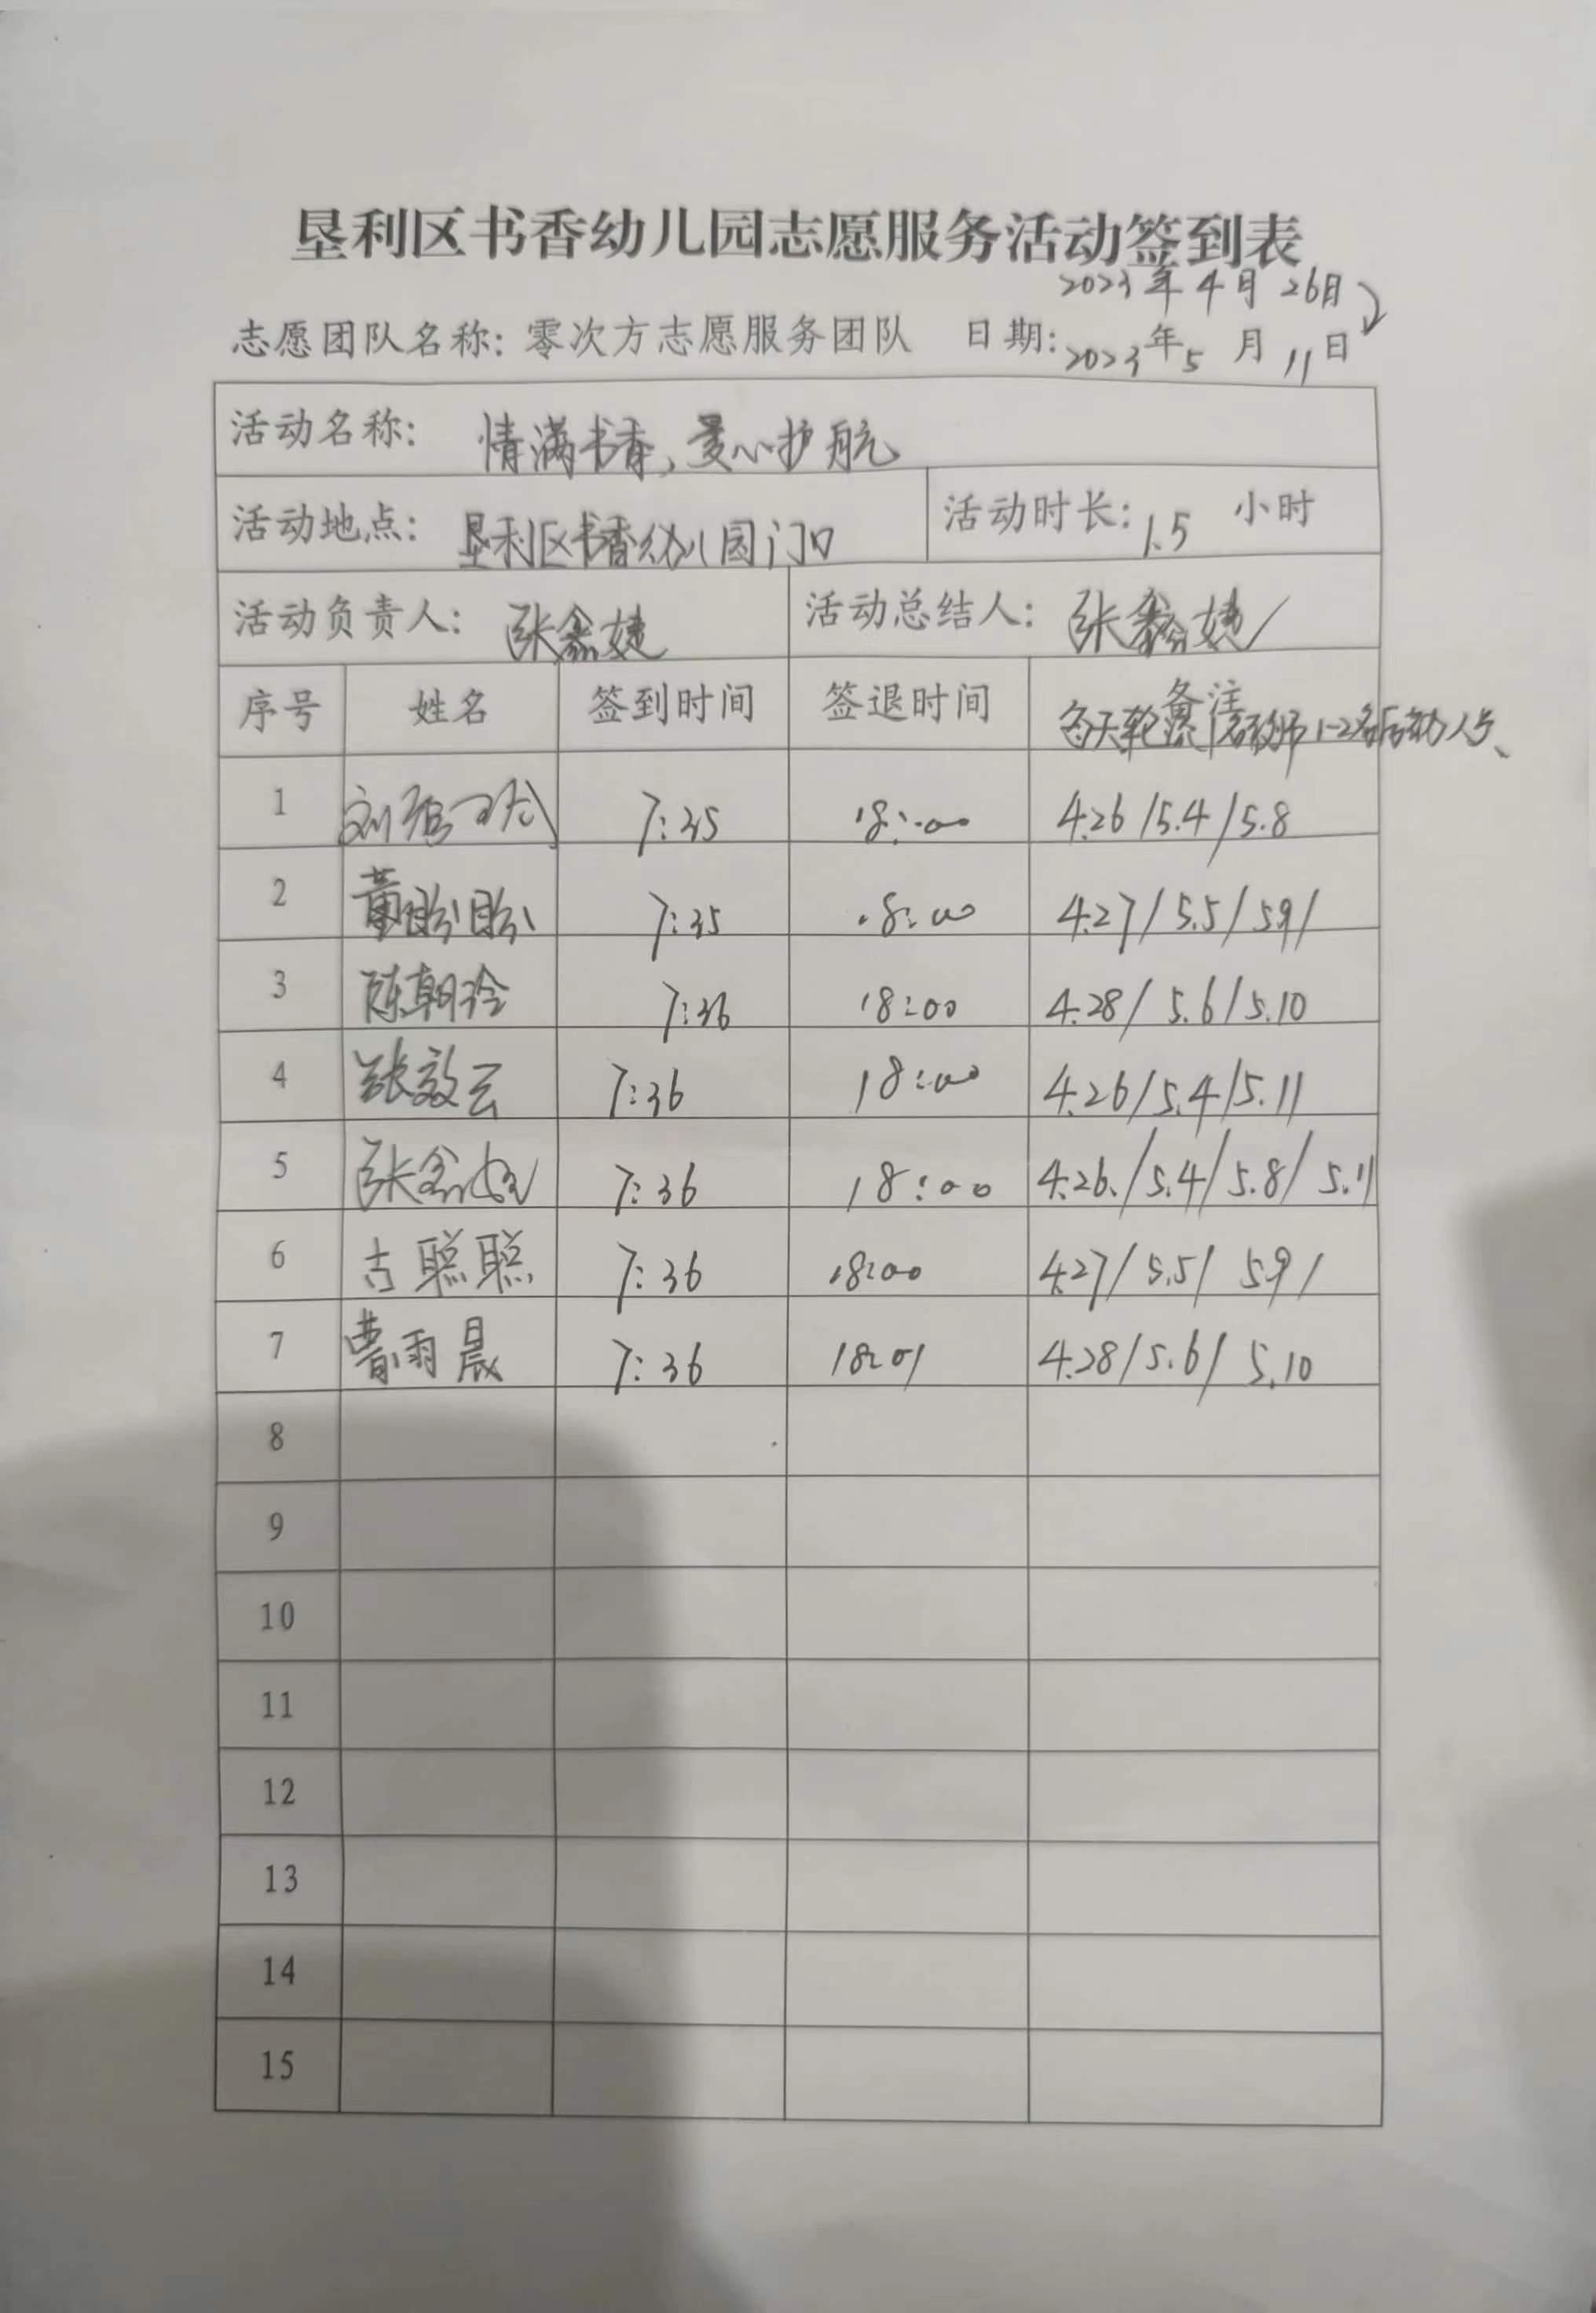 垦利区书香幼儿园志愿服务活动签到表
2023年4月26日
志愿团队名称：零次方志愿服务团队 日期：2023年5月11日
活动名称： 情满书香，爱心护航
活动地点： 垦利区书香幼儿园门口 活动时长：1.5 小时
活动负责人： 张鑫婕 活动总结人： 张鑫婕
序号 姓名 签到时间 签退时间 备注
每天轮流1名教师1-2名后勤人员、
1 7:35 18:00 4.26/5.4/5.8
2 董盼盼 7:35 18:00 4.27/5.5/5.9/
3 陈朝玲 7:36 18:00 4.28/5.6/5.10
4 张效云 7:36 18:00 4.26/5.4/5.11
5 张鑫婕 7:36 18:00 4.26./5.4/5.8/5.11
6 古聪聪 7:36 18:00 4.27/5.5/5.9/
7 曹雨晨 7:36 18:01 4.28/5.6/5.10
8
9
10
11
12
13
14
15